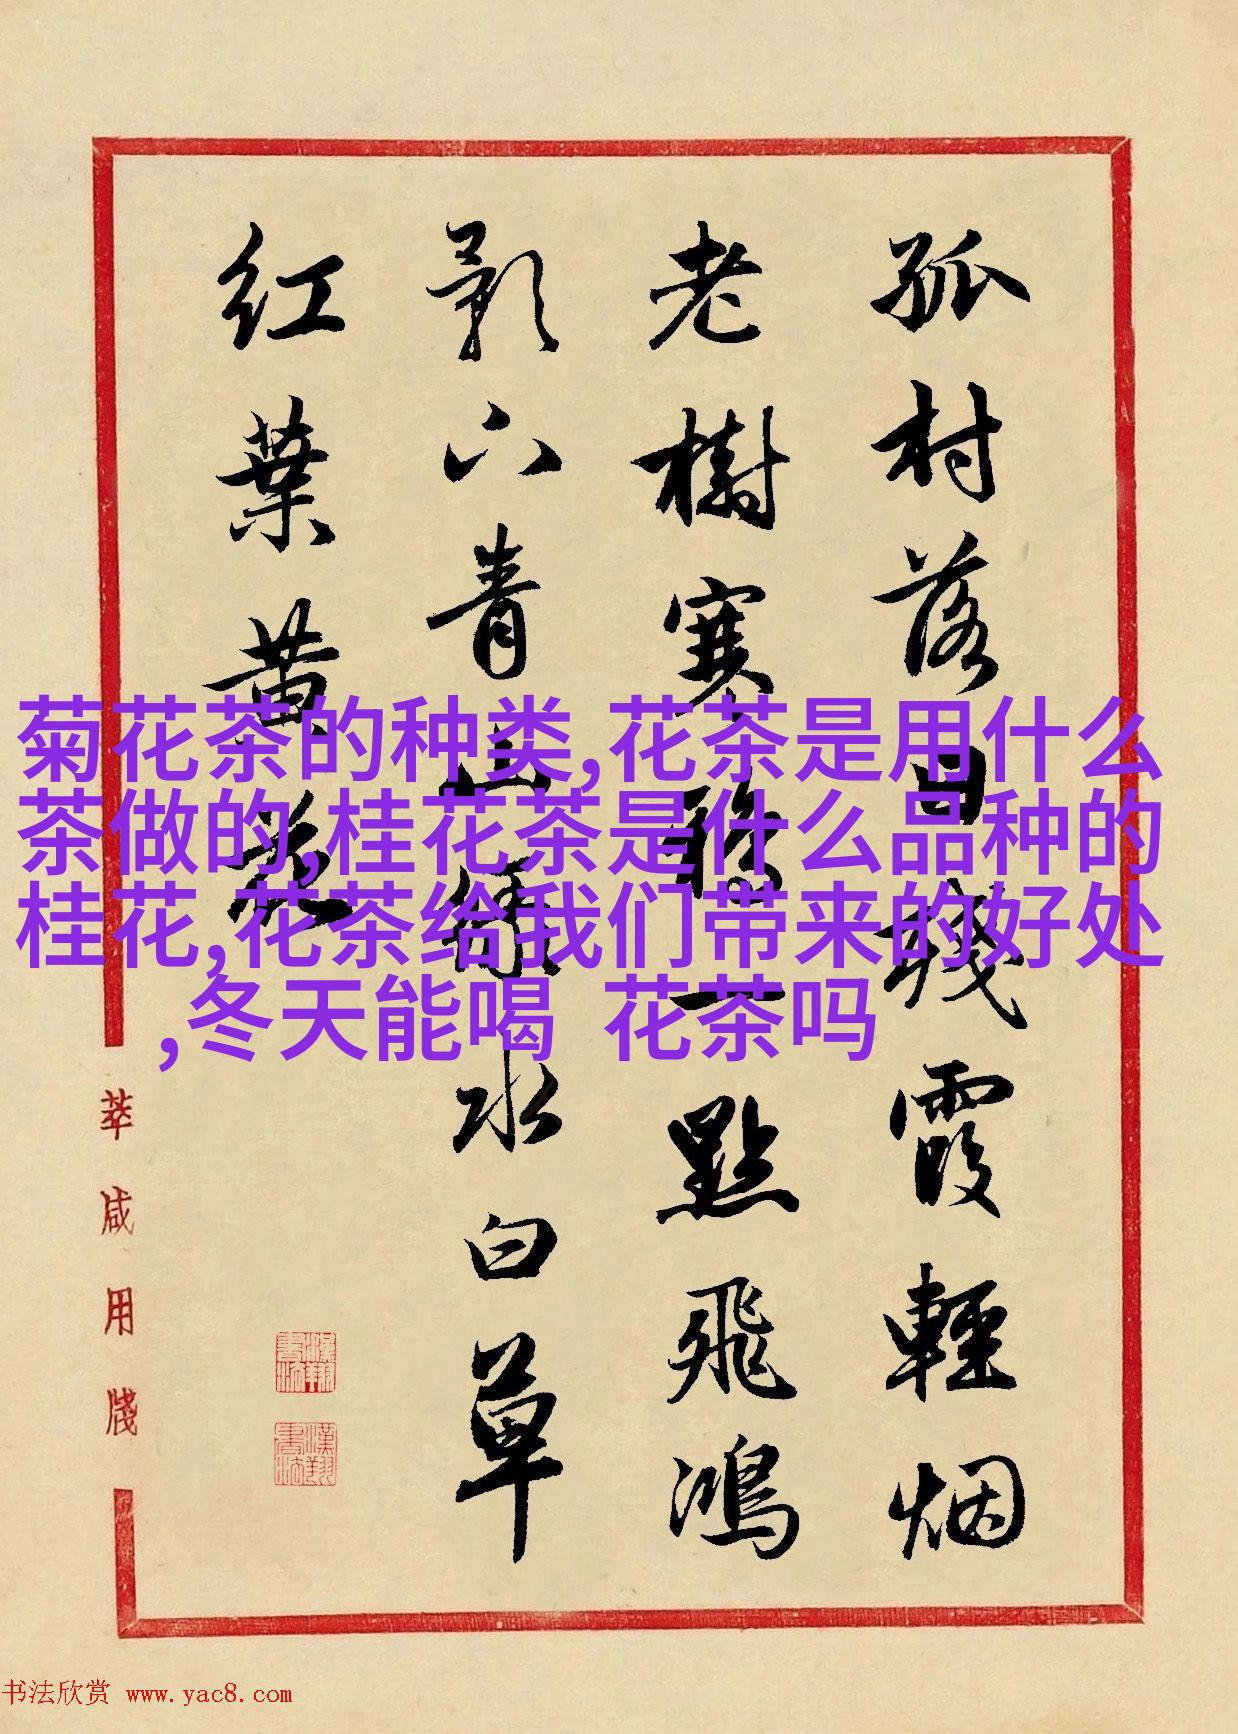 孤村落日残霞輕烟
老樹寒鴉一點飛鴻
影下青山绿水白草
红葉黄花
菊花茶的种类,花茶是用什么
茶做的,桂花茶是什么品种的
桂花,花茶给我们带来的好处
,冬天能喝 花茶吗
莘咸用牋
书法欣赏 www.yac8.com